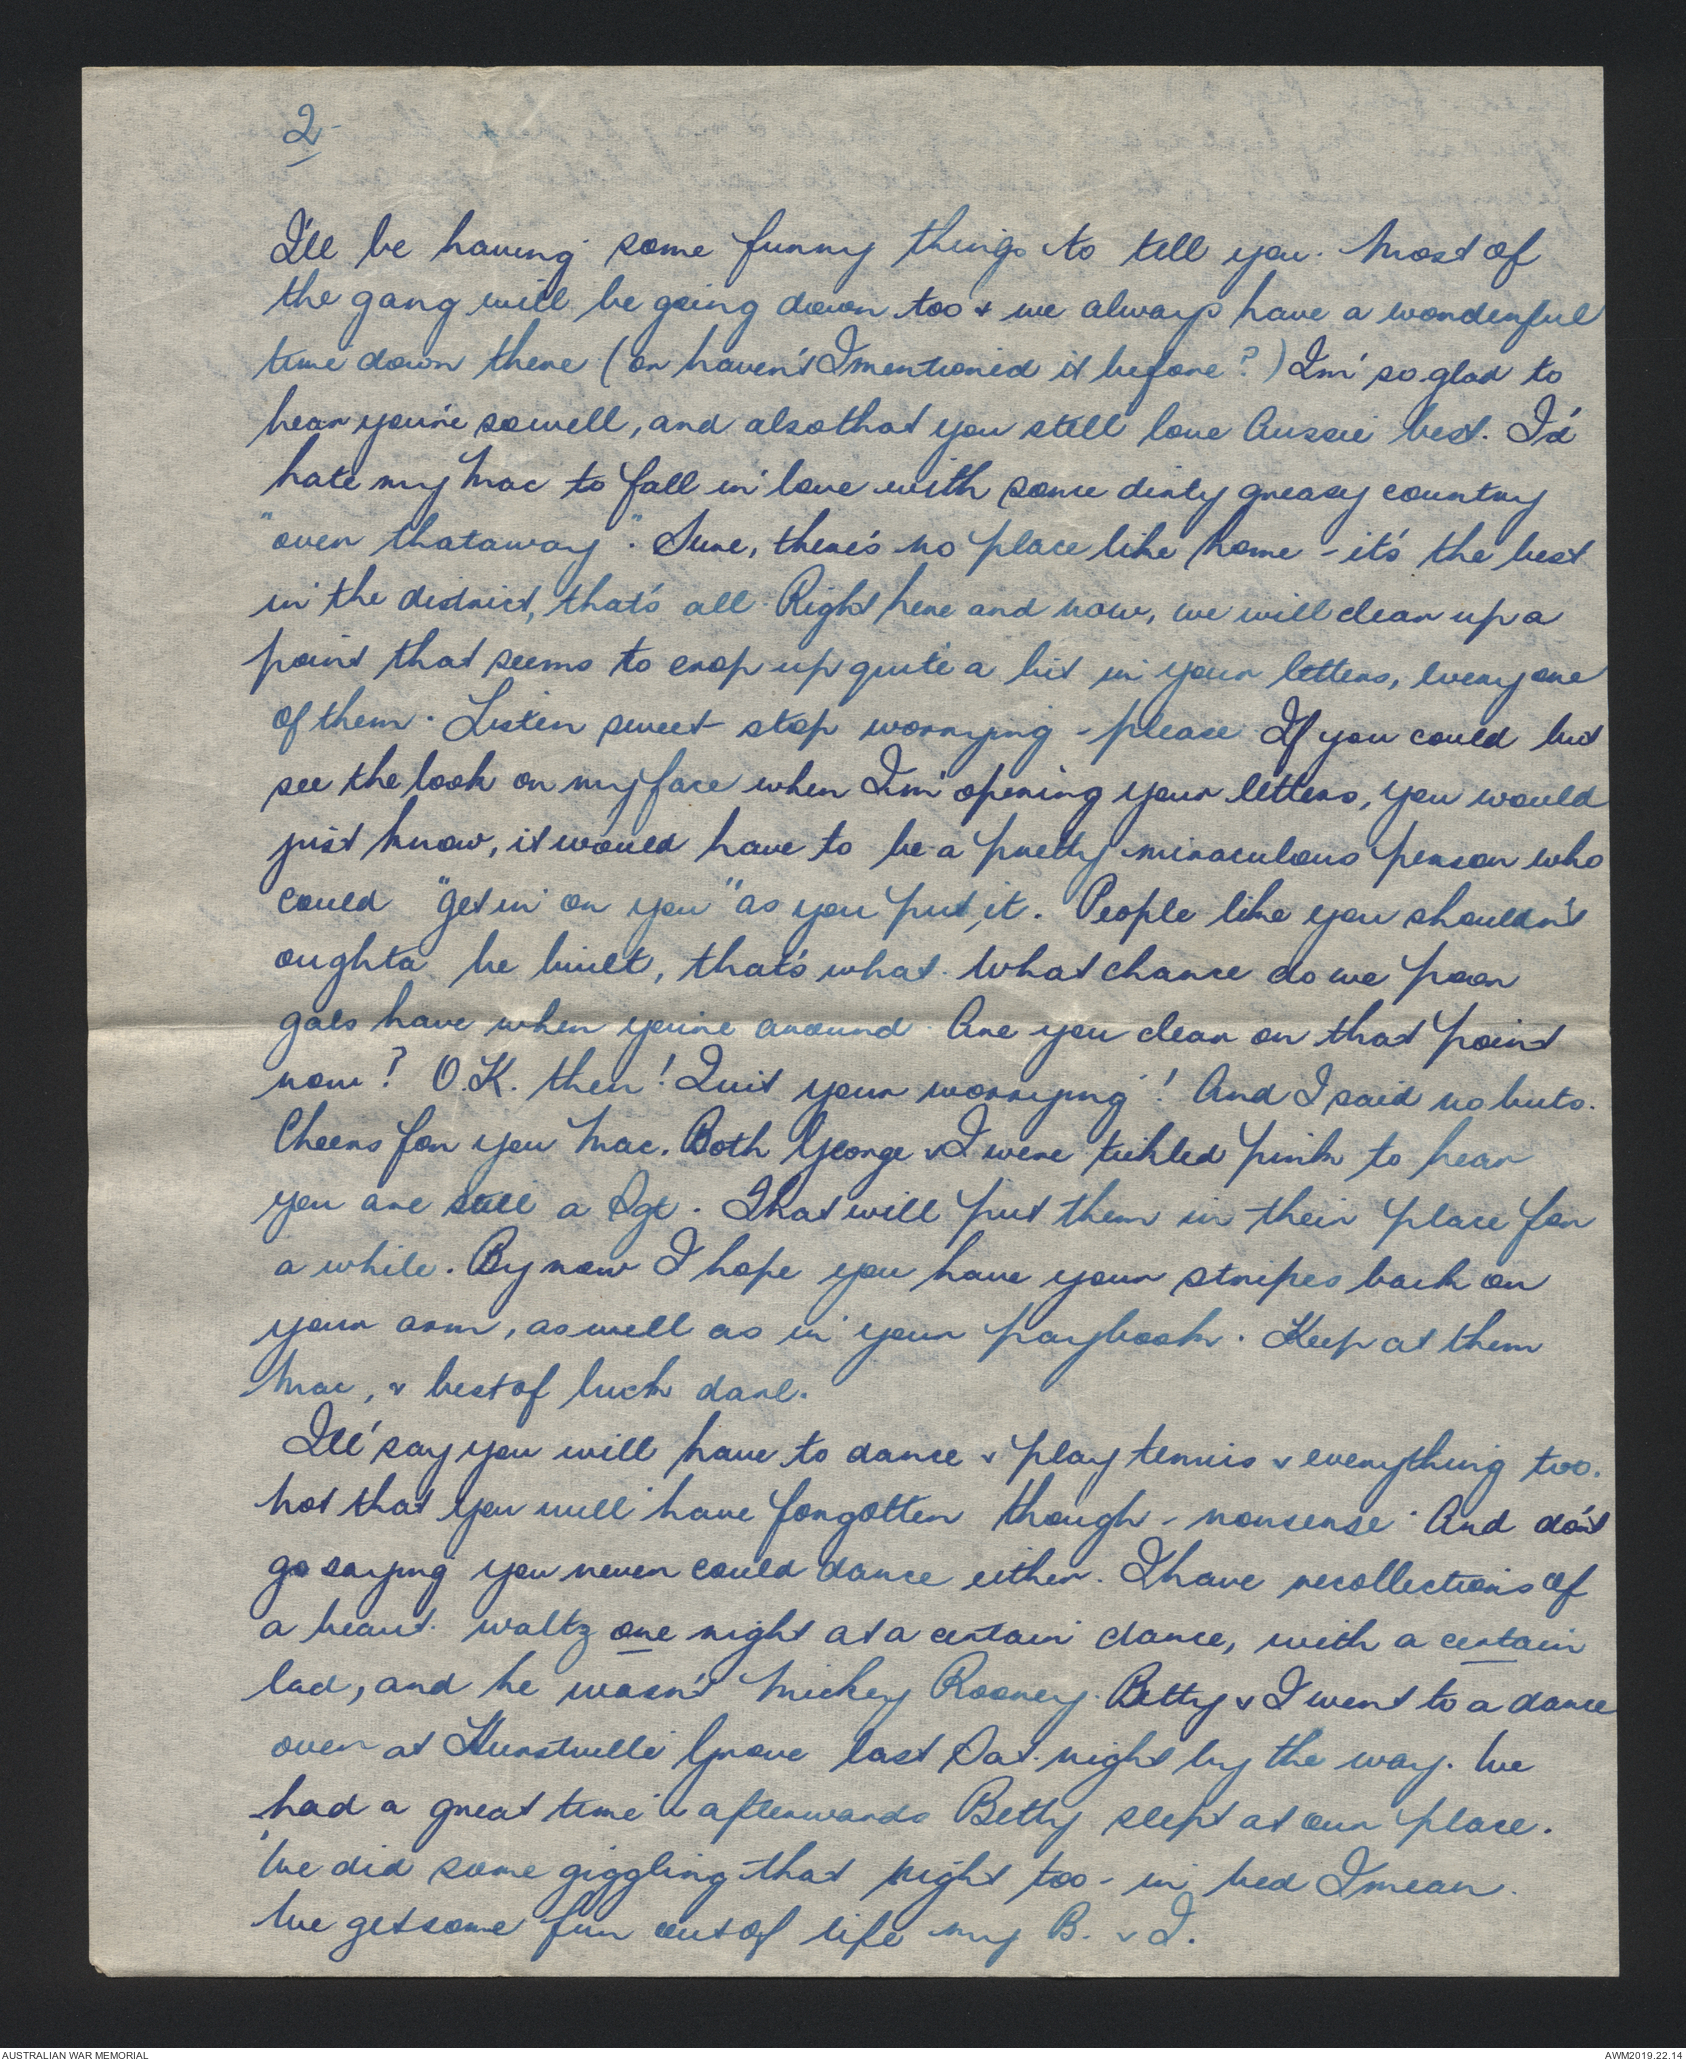 2
I'll be having some funny things to tell you. Most of
the gang will be going down too & we always have a wonderful
time down there (or haven't I mentioned it before?) I'm so glad to
hear you're so well, and also that you still love Aussie best. I'd
hate my Mac to fall in love with some dirty greasy country
"over thataway". Sure, there's no place like home - it's the best
in the district, that's all. Right here and now, we will clear up a
point that seems to crop up quite a bit in your letters, every one
of them. Listen sweet stop worrying - please. If you could but
see the look on my face when I'm opening your letters, you would
just know, it would have to be a pretty miraculous person who
could "get in on you" as you put it. People like you shouldn't
oughta be built, that's what. What chance do we poor
gals have when you're around. Are you clear on that point
now? O.K. then! Quit your worrying! And I said no buts.
Cheers for you Mac. Both George & I were tickled pink to hear
you are still a Sgt. That will put them in their place for
a while. By now I hope you have your stripes back on
your arm, as well as in your paybook. Keep at them
Mac, & best of luck darl.
I'll say you will have to dance & play tennis & everything too.
Not that you will have forgotten though - nonsense. And don't
go saying you never could dance either. I have recollections of
a beaut. waltz one night at a certain dance, with a certain
lad, and he wasn't Mickey Rooney. Betty & I went to a dance
over at Hurstville Grove last Sat. night by the way. We
had a great time & afterwards Betty slept at our place.
We did some giggling that night too - in bed I mean.
We get some fun out of life my B. & I.
AUSTRALIAN WAR MEMORIAL
AWM2019.22.14